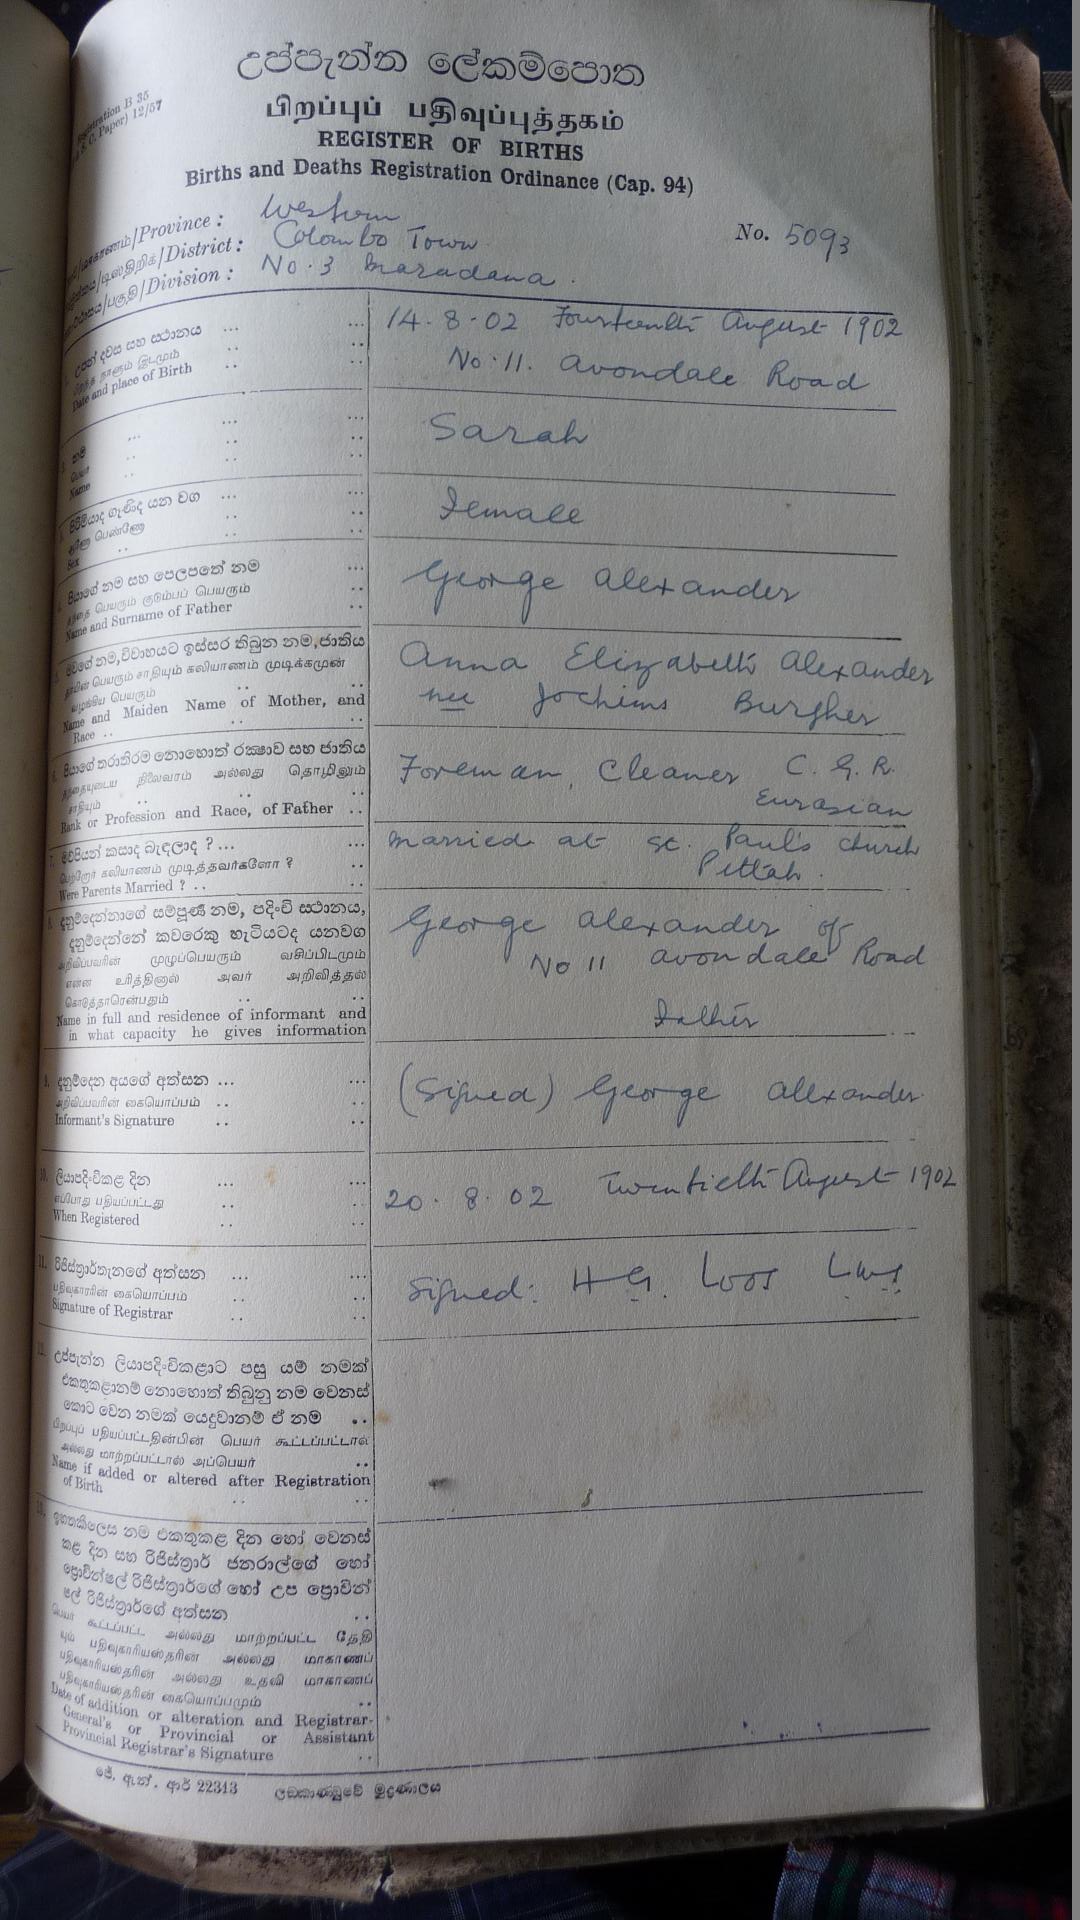 උප්පැන්න ලේකම්පොත
பிறப்புப் பதிவுப்புத்தகம்
REGISTER OF BIRTHS
Births and Deaths Registration Ordinance (Cap. 94)
Registration B 35
Paper) 12/57
/Province : Western
No. 5093
/District : Colombo Town
/Division : No. 3 Maradana
උපන් දවස සහ ස්ථානය ... ... 14.8.02 Fourteenth August 1902
பிறந்த நாளும் இடமும்
Date and place of Birth No. 11. Avondale Road
නම
பெயர்
Name Sarah
පිරිමියාද ගැණිද යන වග
ஆணோ பெண்ணோ
Sex Female
පියාගේ නම සහ පෙලපතේ නම
தந்தை பெயரும் குடும்பப் பெயரும்
Name and Surname of Father George Alexander
මවගේ නම, විවාහයට ඉස්සර තිබුන නම, ජාතිය
தாயின் பெயரும் சாதியும் கலியாணம் முடிக்கமுன்
வழங்கிய பெயரும்
Name and Maiden Name of Mother, and
Race ..
Anna Elizabeth Alexander
nee Jochims Burgher
6. පියාගේ තරාතිරම නොහොත් රක්ෂාව සහ ජාතිය
தந்தையுடைய நிலைவரம் அல்லது தொழிலும்
சாதியும்
Rank or Profession and Race, of Father ..
Foreman, Cleaner C. G. R.
Eurasian
7. මව්පියන් කසාද බැඳලාද ? ...
பெற்றோர் கலியாணம் முடித்தவர்களோ ?
Were Parents Married ? ..
Married at St. Paul's Church
Pettah.
8. දනුම්දෙන්නාගේ සම්පූර්ණ නම, පදිංචි ස්ථානය,
දනුම්දෙන්නේ කවරෙකු හැටියටද යනවග
அறிவிப்பவரின் முழுப்பெயரும் வசிப்பிடமும்
என்ன உரித்தினால் அவர் அறிவித்தல்
கொடுத்தாரென்பதும்
Name in full and residence of informant and
in what capacity he gives information
George Alexander of
No 11 Avondale Road
Father
9. දනුම්දෙන අයගේ අත්සන ...
அறிவிப்பவரின் கையொப்பம்
Informant's Signature (Signed) George Alexander
10. ලියාපදිංචිකළ දින
எப்போது பதியப்பட்டது
When Registered 20.8.02 Twentieth August 1902
11. රිජිස්ත්‍රාර්තැනගේ අත්සන
பதிவுகாரரின் கையொப்பம்
Signature of Registrar Signed: H G. Loos
12. උප්පැන්න ලියාපදිංචිකළාට පසු යම් නමක්
එකතුකළානම් නොහොත් තිබුනු නම වෙනස්
කොට වෙන නමක් යෙදුවානම් ඒ නම ..
பிறப்புப் பதியப்பட்டதின்பின் பெயர் கூட்டப்பட்டால்
அல்லது மாற்றப்பட்டால் அப்பெயர்
Name if added or altered after Registration
of Birth
13. ඉහතකීලෙස නම එකතුකළ දින හෝ වෙනස්
කළ දින සහ රිජිස්ත්‍රාර් ජනරාල්ගේ හෝ
ප්‍රොවින්ෂල් රිජිස්ත්‍රාර්ගේ හෝ උප ප්‍රොවින්
ෂල් රිජිස්ත්‍රාර්ගේ අත්සන
பெயர் கூட்டப்பட்ட அல்லது மாற்றப்பட்ட தேதி
யும் பதிவுகாரியஸ்தரின் அல்லது மாகாணப்
பதிவுகாரியஸ்தரின் அல்லது உதவி மாகாணப்
பதிவுகாரியஸ்தரின் கையொப்பமும்
Date of addition or alteration and Registrar-
General's or Provincial or Assistant
Provincial Registrar's Signature
ජේ. ඇන්. ආර් 22313 ලංකාණ්ඩුවේ මුද්‍රණාලය